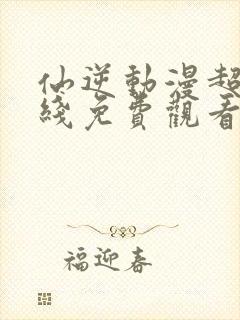 仙逆動漫超
綫免費觀看
福迎春